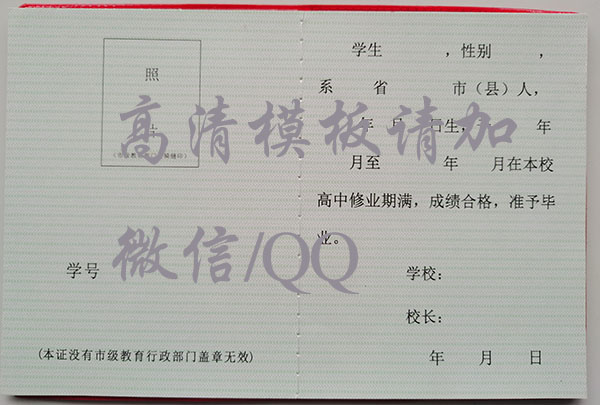 照
片
学号
(本证没有市级教育行政部门盖章无效)
学生 ，性别 ，
系 省 市（县）人，
年 月 日生， 年
月至 年 月在本校
高中修业期满，成绩合格，准予毕
业。
学校：
校长：
年 月 日
高清模板请加
微信/QQ